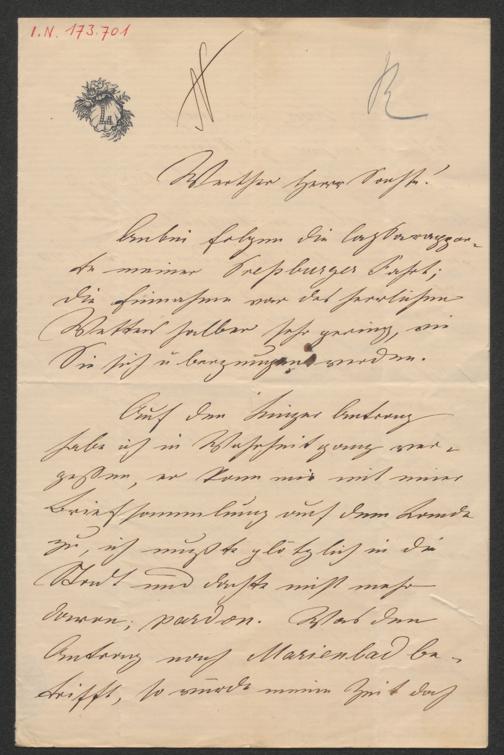 I.N. 173.701
N
R
Werther Herr Doctor!
Anbei folgen die Cassarappor-
te meiner Preßburger Fahrt;
die Einnahme war des herrlichen
Wetters halber sehr gering, wie
Sie sich überzeugen werden.
Auf den Linzer Antrag
habe ich in Wahrheit ganz ver-
gessen, er kam mir mit einer
Briefsammlung auf dem Lande
zu, ich mußte plötzlich in die
Stadt und dachte nicht mehr
daran; pardon. Was den
Antrag nach Marienbad be-
trifft, so würde meine Zeit doch